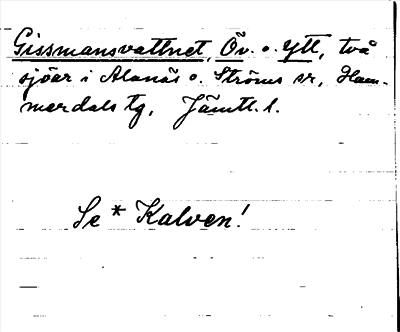 Gissmansvattnet, Öv. o. Ytt, två
sjöar i Alanäs o. Ströms sr, Ham-
merdals tg, Jämtl. l.
Se * Kalven!